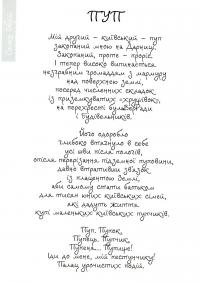 ПУП
Мій другий – київський – пуп
закопаний мною на Дарниці.
Закопаний, проте – проріс.
І тепер високо випинається
незграбним громаддям з мармуру
над поверхнею землі,
посеред численних складок
із приземкуватих «хрущівок»,
на перехресті Бульварної
і Будівельників.
Його одоробло
глибоко втягнуло в себе
усі шви після пологів,
опісля перерізання підземної пуповини,
давно втративши зв'язок
із плацентою Землі,
аби самому стати батьком
для тисяч юних київських сімей,
які дадуть життя
купі маленьких київських пупчиків.
Пуп. Пупок.
Пупець. Пупчик.
Пупена... Пупище!
Іди до мене, мій пестунчику!
Палац урочистих подій.